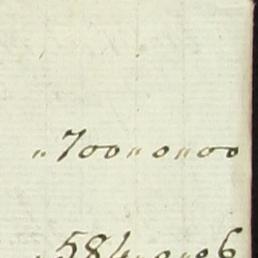 "700"0"00
"584"0"06